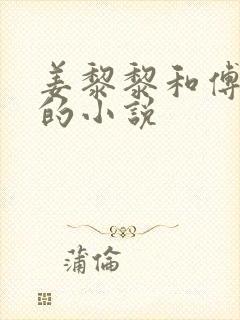 姜黎黎和傅
的小说
蒲倫